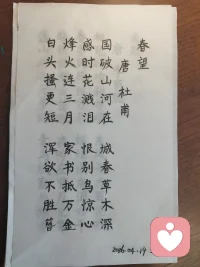 春望
唐 杜甫
国破山河在 城春草木深
感时花溅泪 恨别鸟惊心
烽火连三月 家书抵万金
白头搔更短 浑欲不胜簪